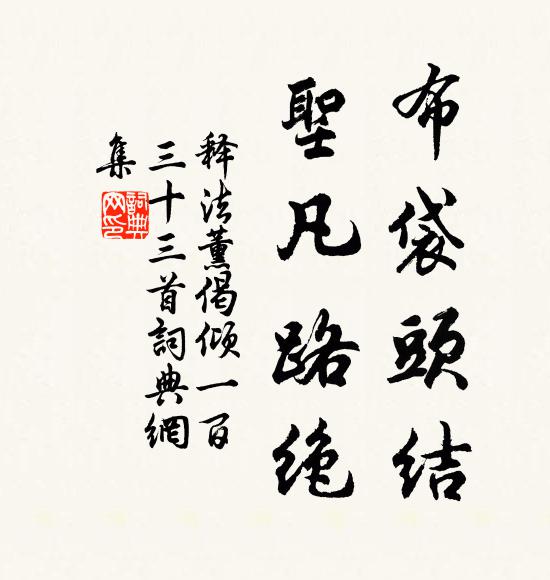 布袋頭結
聖凡路絶
释法薰偈倾一百
三十三首詞典網
集
詞典網印